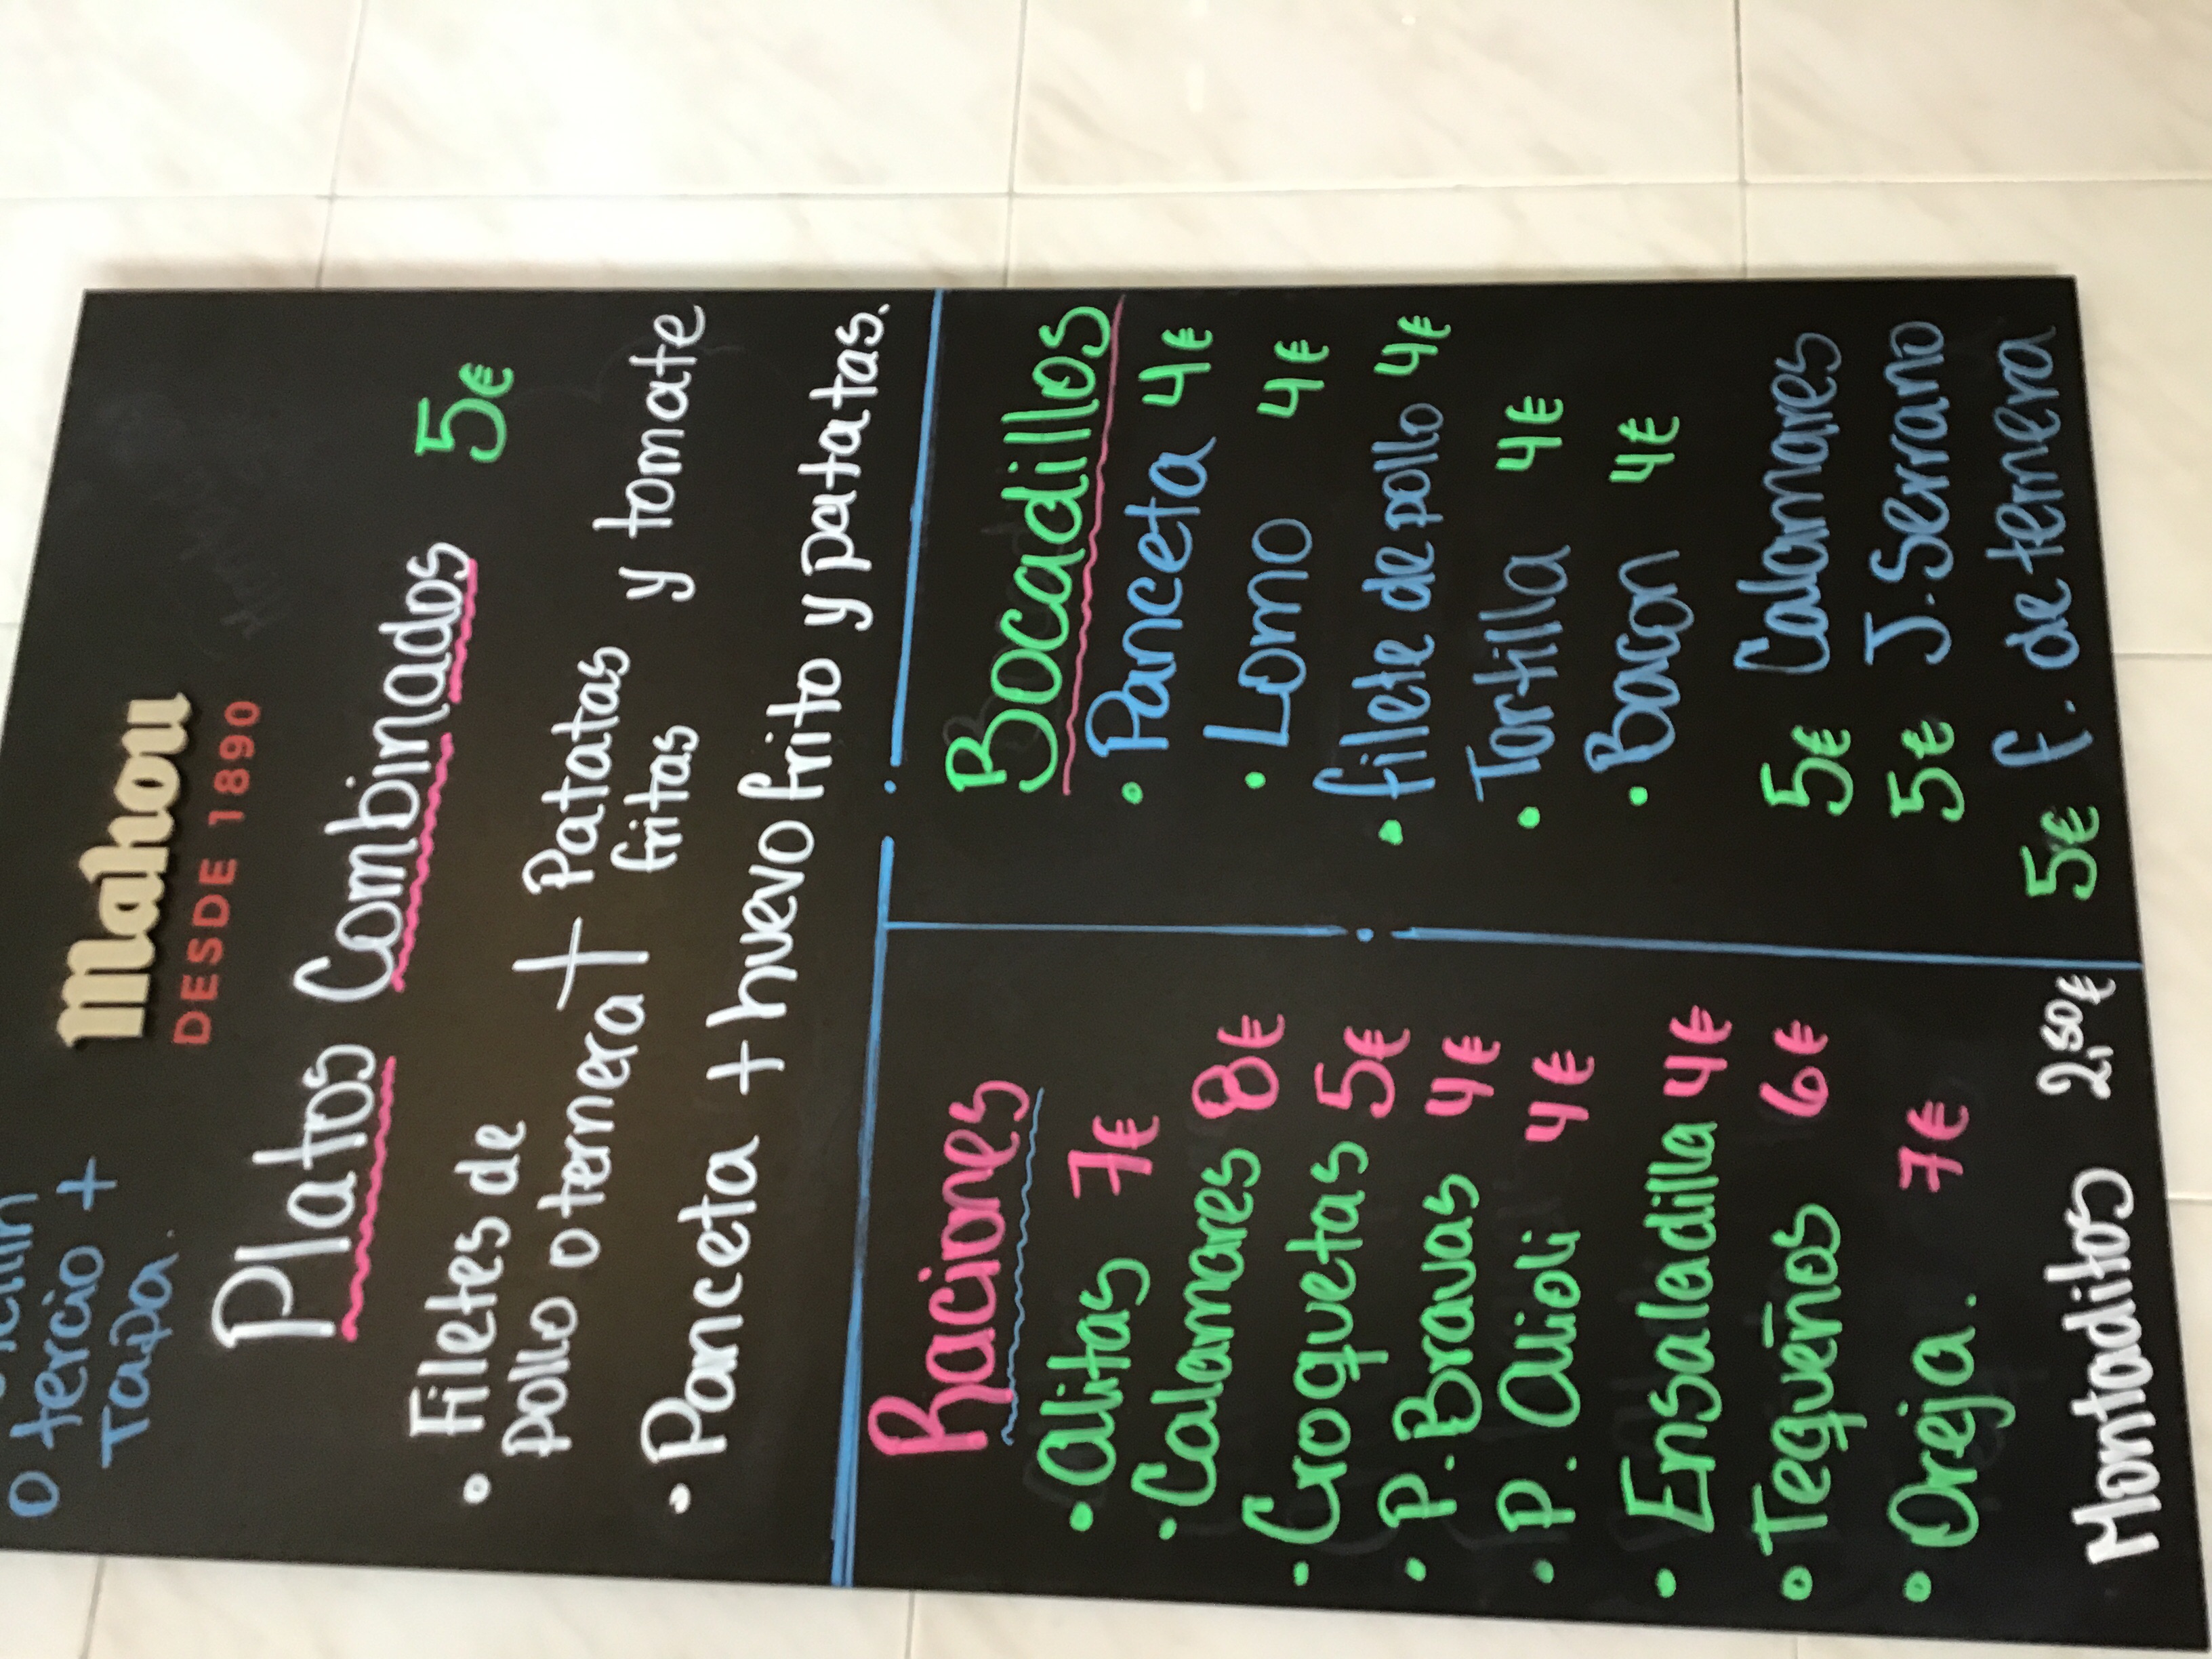 o tercio +
Tapa.
Mahou
DESDE 1890
Platos Combinados 5€
• Filetes de
pollo o ternera + Patatas
fritas y tomate
• Panceta + huevo frito y patatas.
Raciones
• Alitas 7€
• Calamares 8€
• Croquetas 5€
• P. Bravas 4€
• P. Alioli 4€
• Ensaladilla 4€
• Tequeños 6€
• Oreja. 7€
Montaditos 2,50€
Bocadillos
• Panceta 4€
• Lomo 4€
• filete de pollo 4€
• Tortilla 4€
• Bacon 4€
5€ Calamares
5€ J. Serrano
5€ f. de ternera